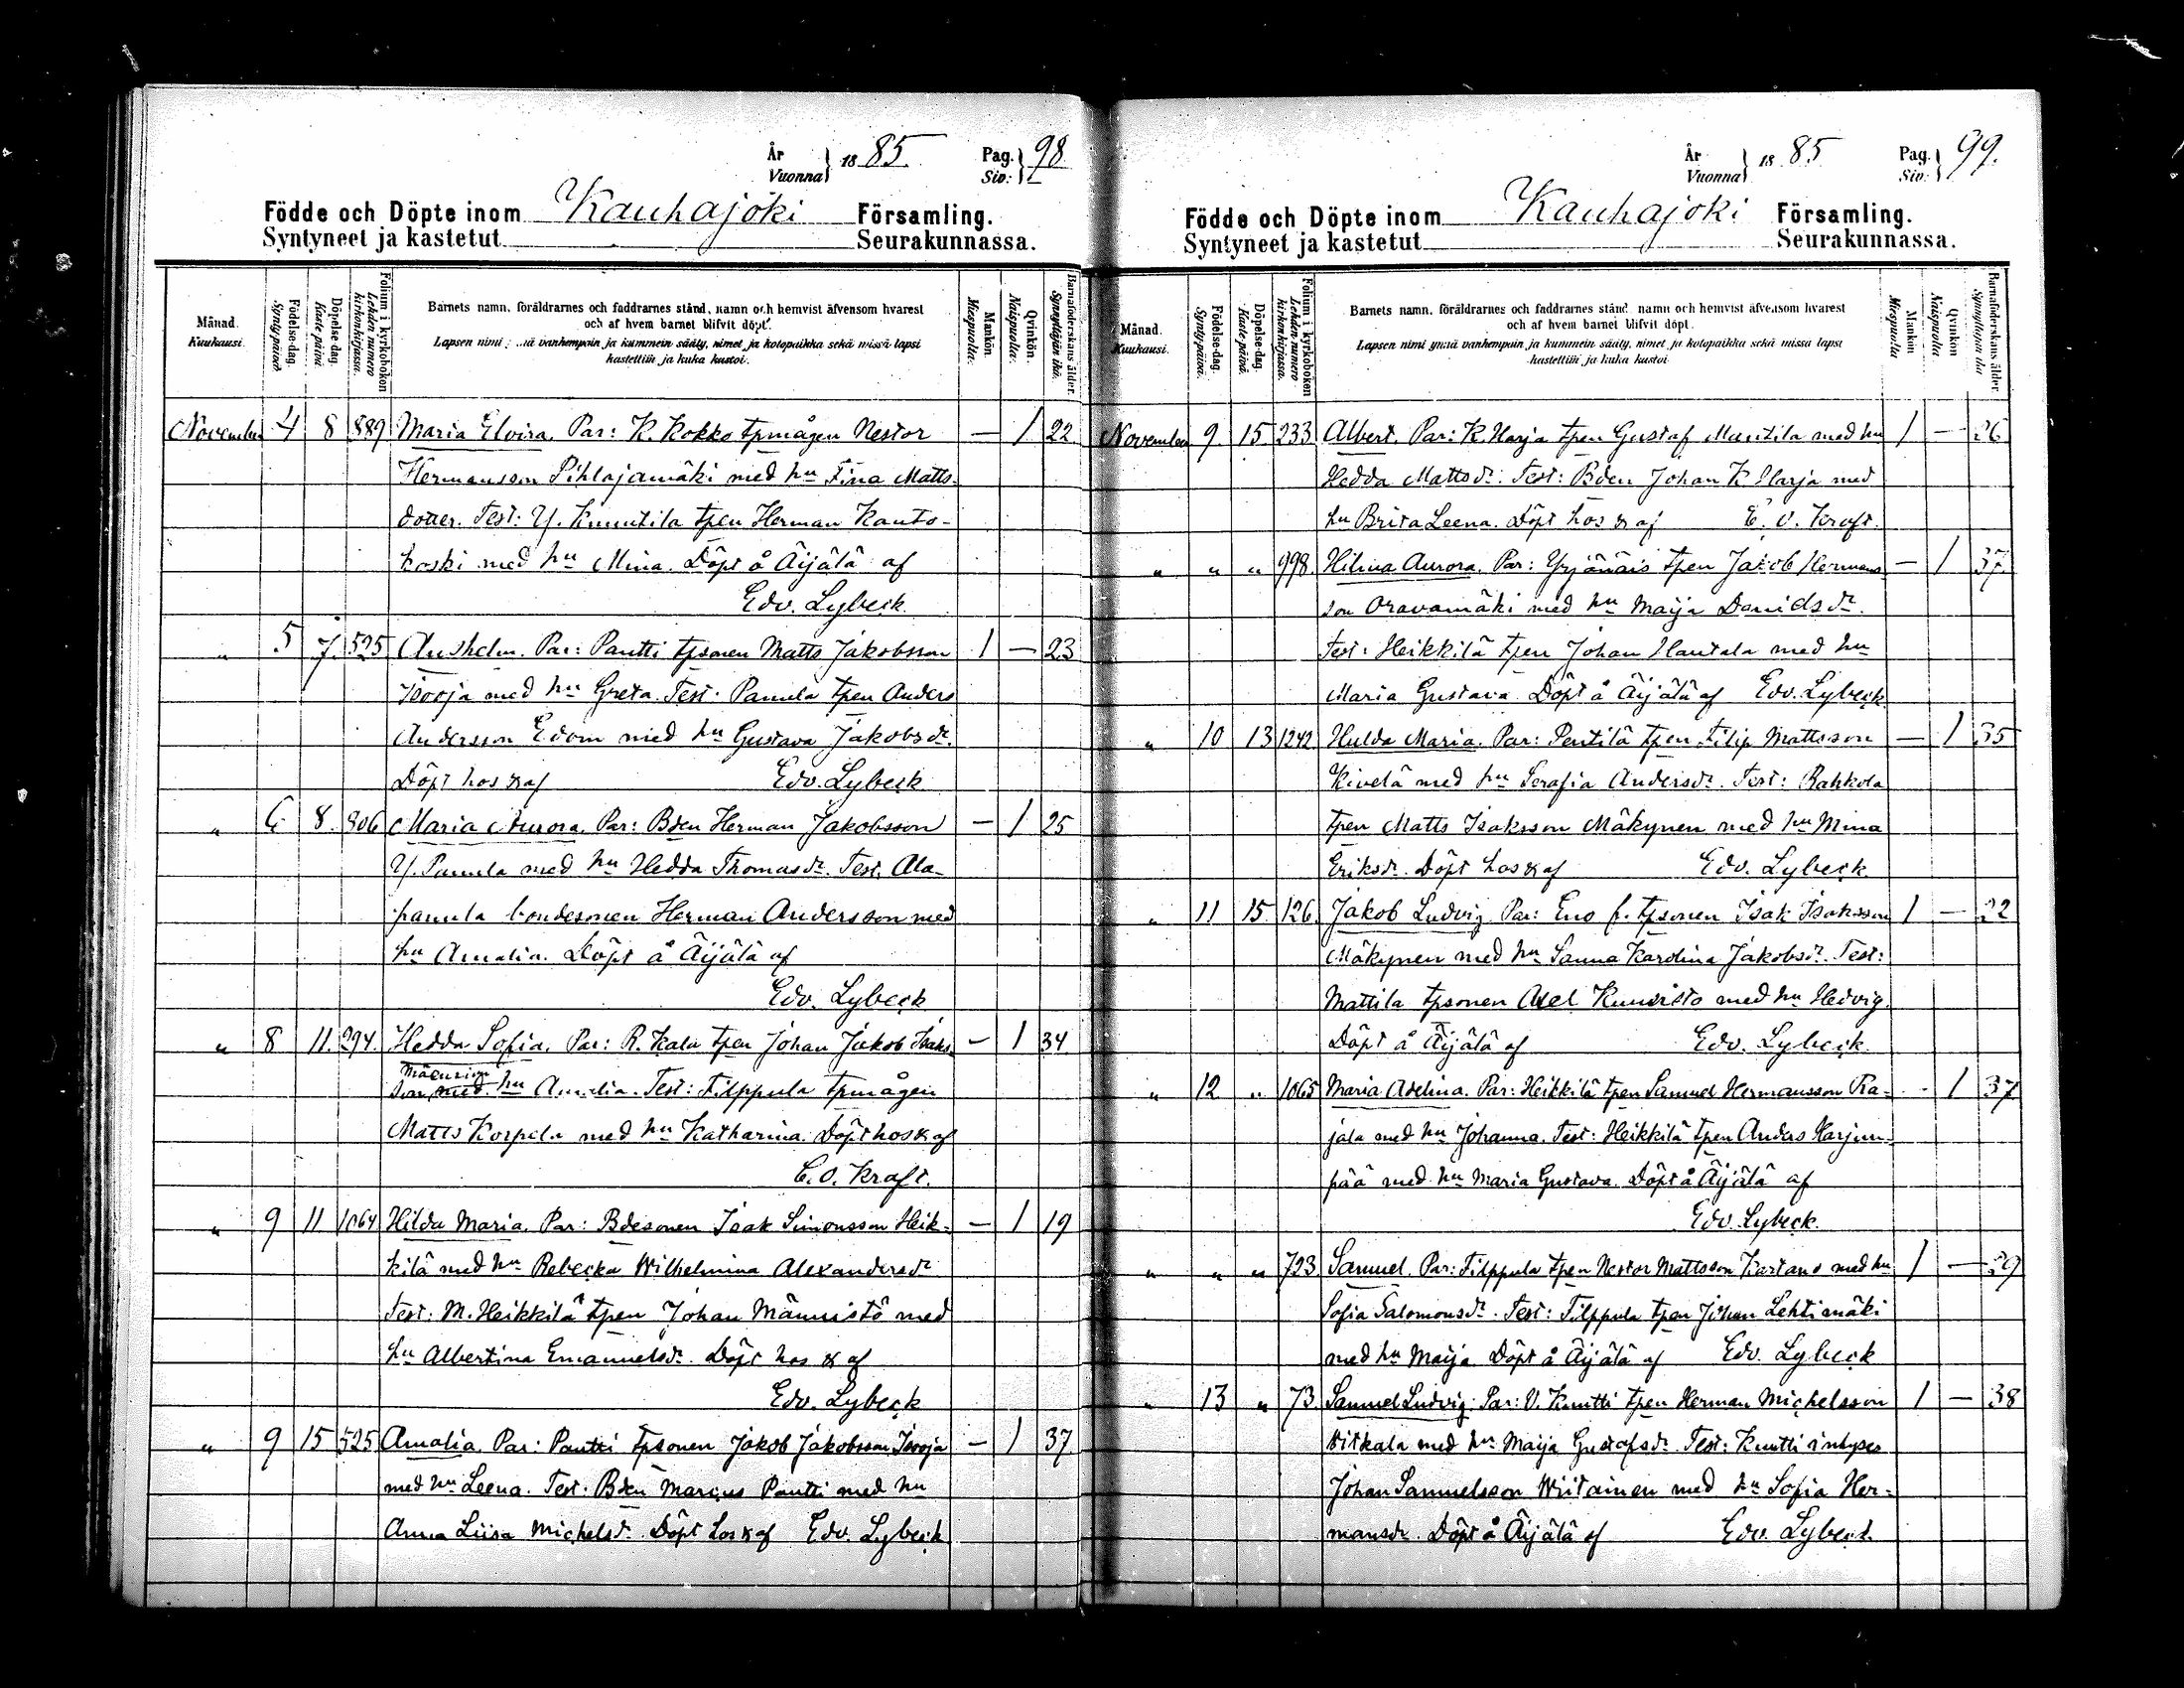 År
Vuonna } 18 85. Pag. Siv: } 98
Födde och Döpte inom Kauhajoki Församling.
Syntyneet ja kastetut Seurakunnassa.
Månad. Kuukausi. Födelse-dag. Syntypäivä. Döpelse dag. Kaste päivä. Folium i kyrkoboken Lehden numero kirkonkirjassa. Barnets namn, föräldrarnes och faddrarnes stånd, namn och hemvist äfvensom hvarest
och af hvem barnet blifvit döpt. Mankön. Miespuolia. Qvinkön. Naispuolia. Barnaföderskans ålder. Synnyttäjän ikä.
Lapsen nimi vanhempain ja kummein sääty, nimet ja kotopaikka sekä missä lapsi
kastettiin ja kuka kastoi.
November 4 8 889 Maria Elvira. Par: K. Kokko tpmågen Nestor — 1 22
Hermansson Pihlajamäki med hu Fina Matts-
dotter. Test: Y. Knuutila tpen Herman Kauto-
koski med hu Mina. Döpt å Äijälä af
Edv. Lybeck
" 5 7. 525 Anshelm. Par: Pantti tpsonen Matts Jakobsson 1 — 23
Isooja med hu Greta. Test: Panula tpen Anders
Andersson Edom med hu Gustava Jakobsdr.
Döpt hos & af Edv. Lybeck
" 6 8. 806 Maria Aurora. Par: Bden Herman Jakobsson — 1 25
Y. Panula med hu Hedda Thomasdr. Test. Ala-
panula bondesonen Herman Andersson med
hu Amalia. Döpt å Äijälä af
Edv. Lybeck
" 8 11. 294. Hedda Sofia. Par: R. Kala tpen Johan Jakob Isaks- — 1 34
son med hu Amalia. Test: Filppula tpmågen
Matts Korpela med hu Katharina. Döpt hos & af
C. O. Kraft.
" 9 11 1064 Hilda Maria. Par: Bdesonen Isak Simonsson Heik- — 1 19
kilä med hu Rebecka Wilhelmina Alexandersdr
Test: M. Heikkilä tpen Johan Männistö med
hu Albertina Emanuelsdr. Döpt hos & af
Edv. Lybeck
" 9 15 525 Amalia. Par: Pantti tpsonen Jakob Jakobsson Isooja — 1 37
med hu Leena. Test: Bden Marcus Pantti med hu
Anna Liisa Michelsdr. Döpt hos & af Edv. Lybeck
År
Vuonna } 18 85 Pag. Siv: } 99.
Födde och Döpte inom Kauhajoki Församling.
Syntyneet ja kastetut Seurakunnassa.
Månad. Kuukausi. Födelse-dag. Synty-päivä. Döpelse-dag. Kaste-päivä. Folium i kyrkoboken Lehden numero kirkonkirjassa. Barnets namn, föräldrarnes och faddrarnes stånd, namn och hemvist äfvensom hvarest
och af hvem barnet blifvit döpt. Mankön Miespuolia Qvinkön Naispuolia Barnaföderskans ålder. Synnyttäjän ikä
Lapsen nimi ynnä vanhempain ja kummein sääty, nimet ja kotopaikka sekä missä lapsi
kastettiin ja kuka kastoi
November 9. 15. 233 Albert. Par: K. Harja tpen Gustaf Mantila med hu 1 — 26
Hedda Mattsdr. Test: Bden Johan K. Harja med
hu Brita Leena. Döpt hos & af C. O. Kraft.
" " " 998. Hilma Aurora. Par: Yrjänäis tpen Jakob Hermans- — 1 37.
son Oravamäki med hu Maija Danielsdr.
Test: Heikkilä tpen Johan Hautala med hu
Maria Gustava. Döpt å Äijälä af Edv. Lybeck
" 10 13 1242 Hulda Maria. Par: Pentilä tpen Filip Mattsson — 1 35
Kivelä med hu Serafia Andersdr. Test: Rahkola
tpen Matts Isaksson Mäkynen med hu Mina
Eriksdr. Döpt hos & af Edv. Lybeck
" 11 15. 126. Jakob Ludvig. Par: Eno f. tpsonen Isak Isaksson 1 — 22
Mäkynen med hu Sanna Karolina Jakobsdr. Test:
Mattila tpsonen Axel Kuusisto med hu Hedvig.
Döpt å Äijälä af Edv. Lybeck.
" 12 " 1065 Maria Adelina. Par: Heikkilä tpen Samuel Hermansson Ra- - 1 37
jala med hu Johanna. Test: Heikkilä tpen Anders Harjun-
pää med hu Maria Gustava. Döpt å Äijälä af
Edv. Lybeck.
" " " 723. Samuel. Par: Filppula tpen Nestor Mattsson Kartano med hu 1 — 29
Sofia Salomonsdr. Test: Filppula tpen Johan Lehtimäki
med hu Maija. Döpt å Äijälä af Edv. Lybeck
" 13 " 73. Samuel Ludvig. Par: V. Knutti tpen Herman Michelsson 1 — 38
Witkala med hu Maija Gustafsdr. Test: Knutti inhyses
Johan Samuelsson Wiitainen med hu Sofia Her-
mansdr. Döpt å Äijälä af Edv. Lybeck.